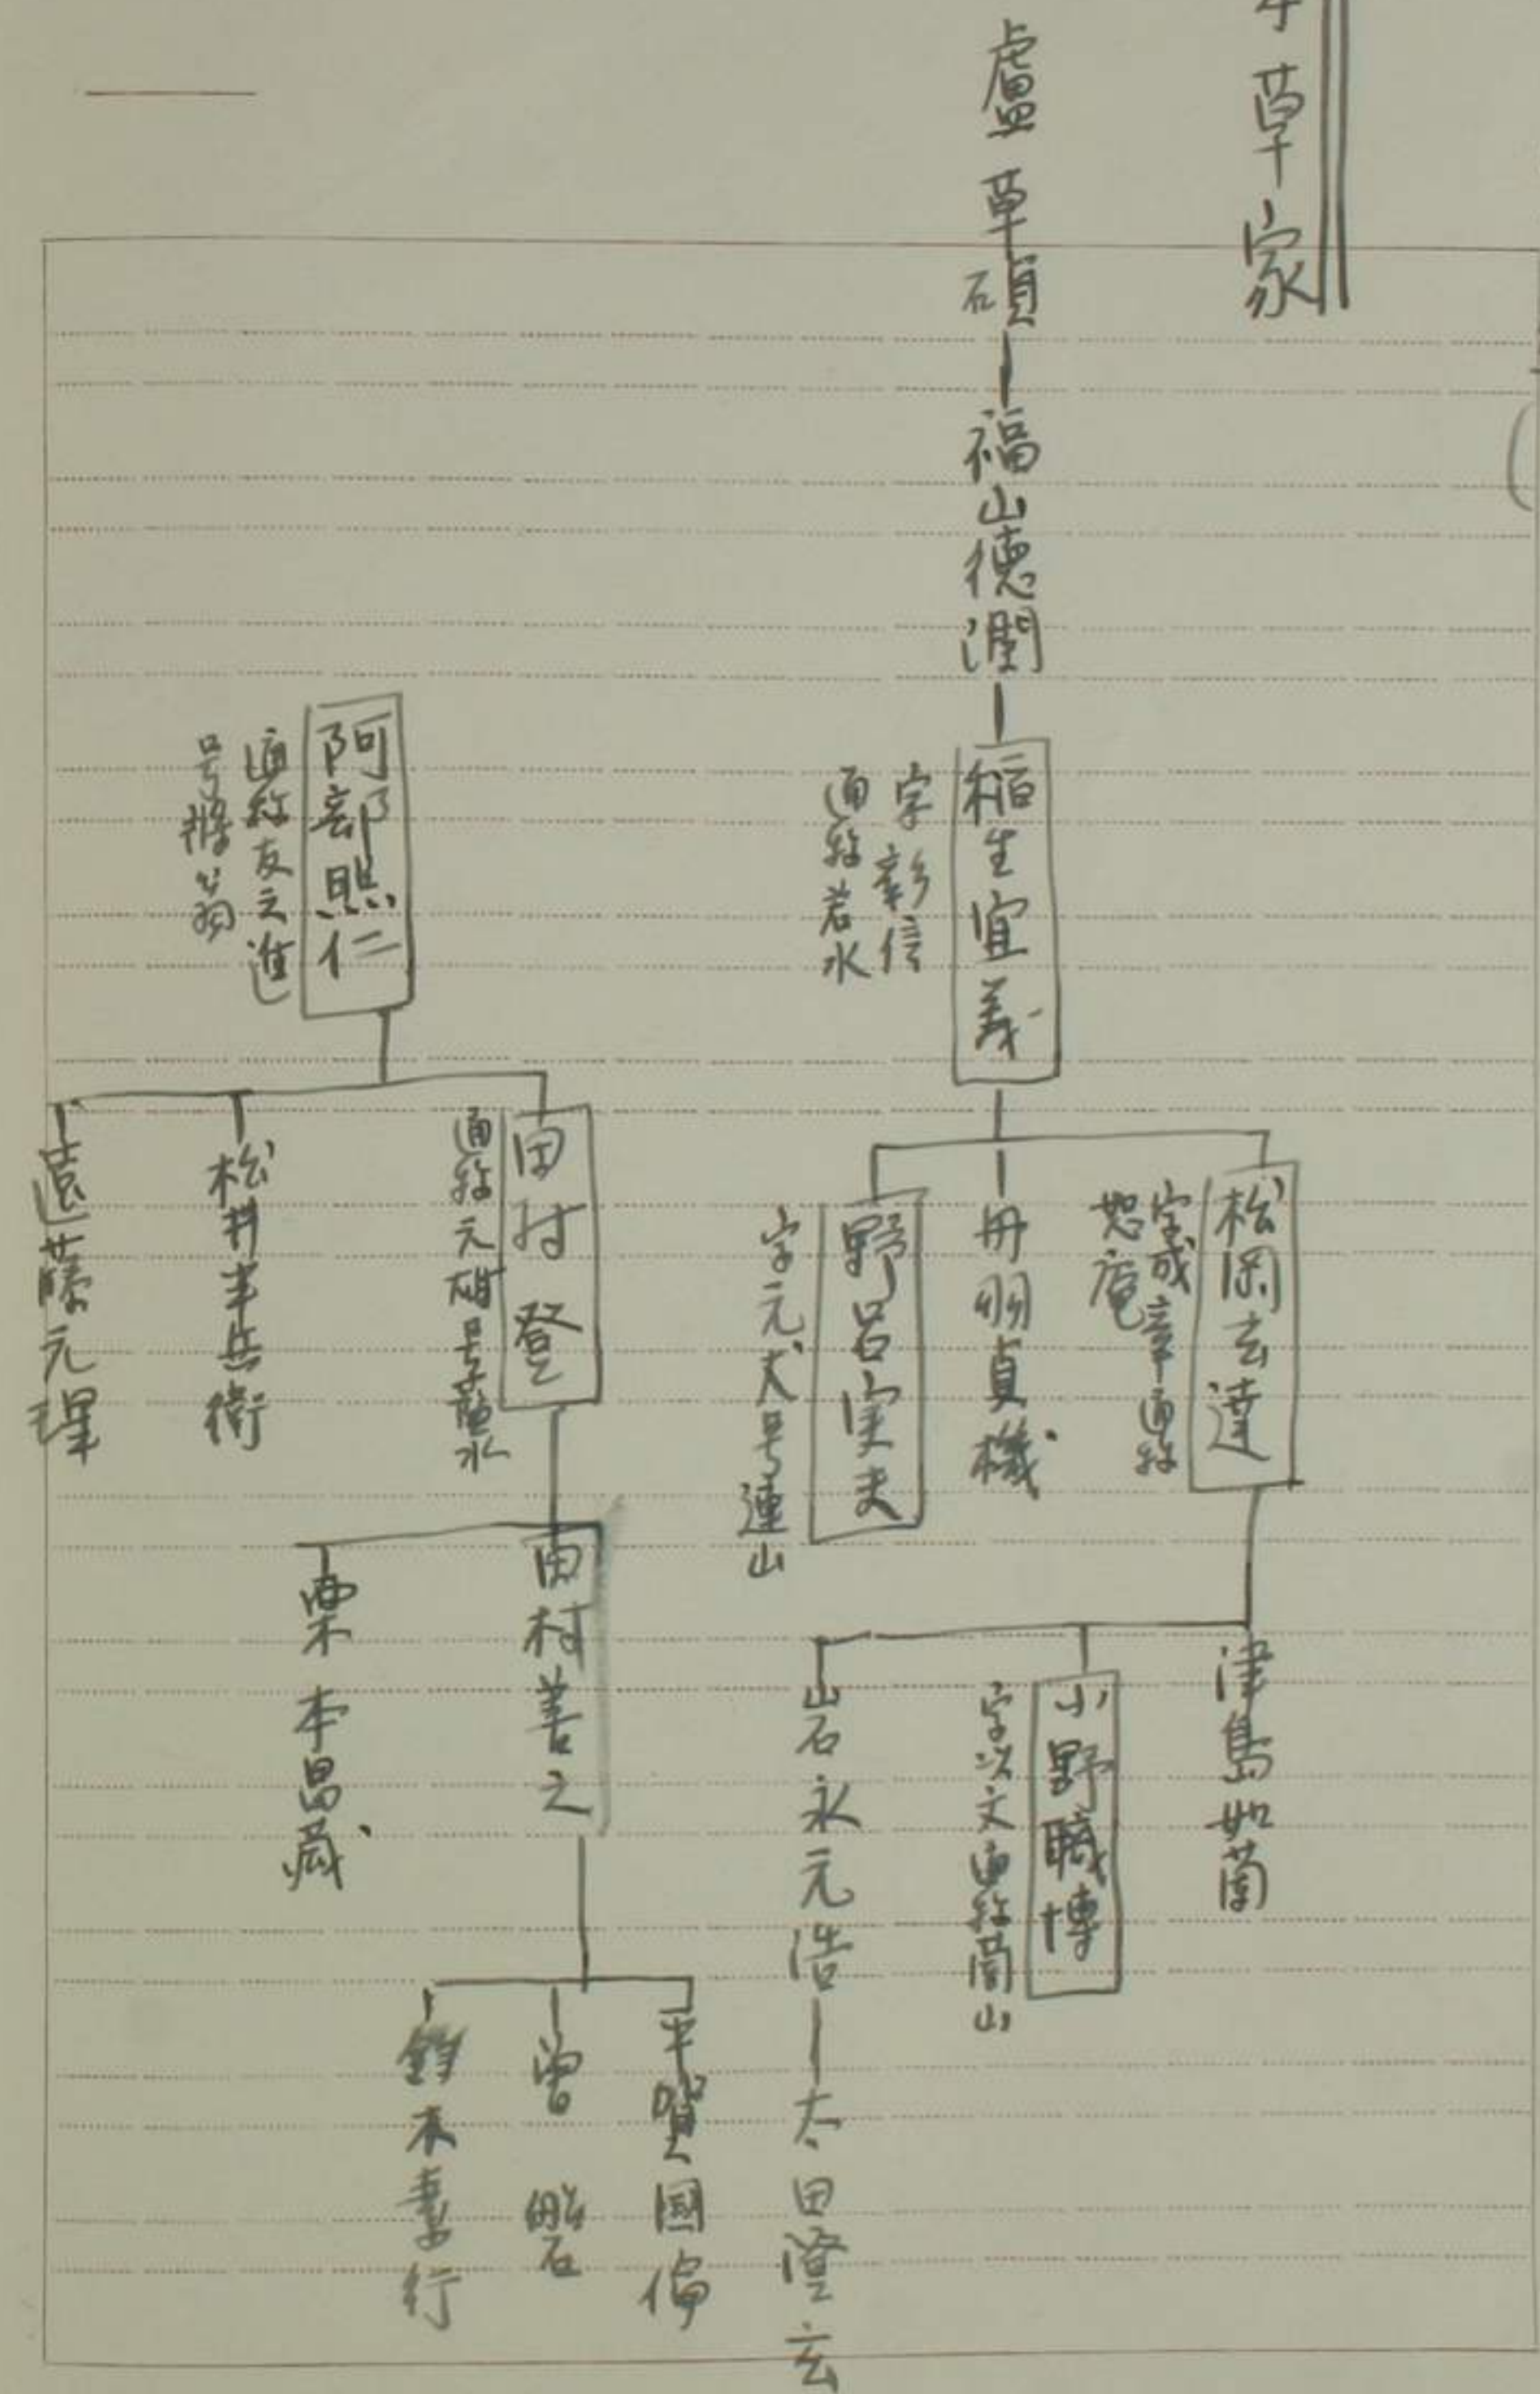 草家
盧草碩
福山徳潤
稲生宜義
字彰信
通称若水
松岡玄達
字成章通称
恕庵
丹羽貞機
野呂実夫
字元丈号連山
津島如蘭
小野職博
字以文通称蘭山
岩永元浩
太田澄玄
阿部照仁
通称友之進
号将翁
田村登
通称元雄号藍水
松井半兵衛
遠藤元理
田村善之
栗本昌蔵
平賀國倫
曽 磐
鈴木素行